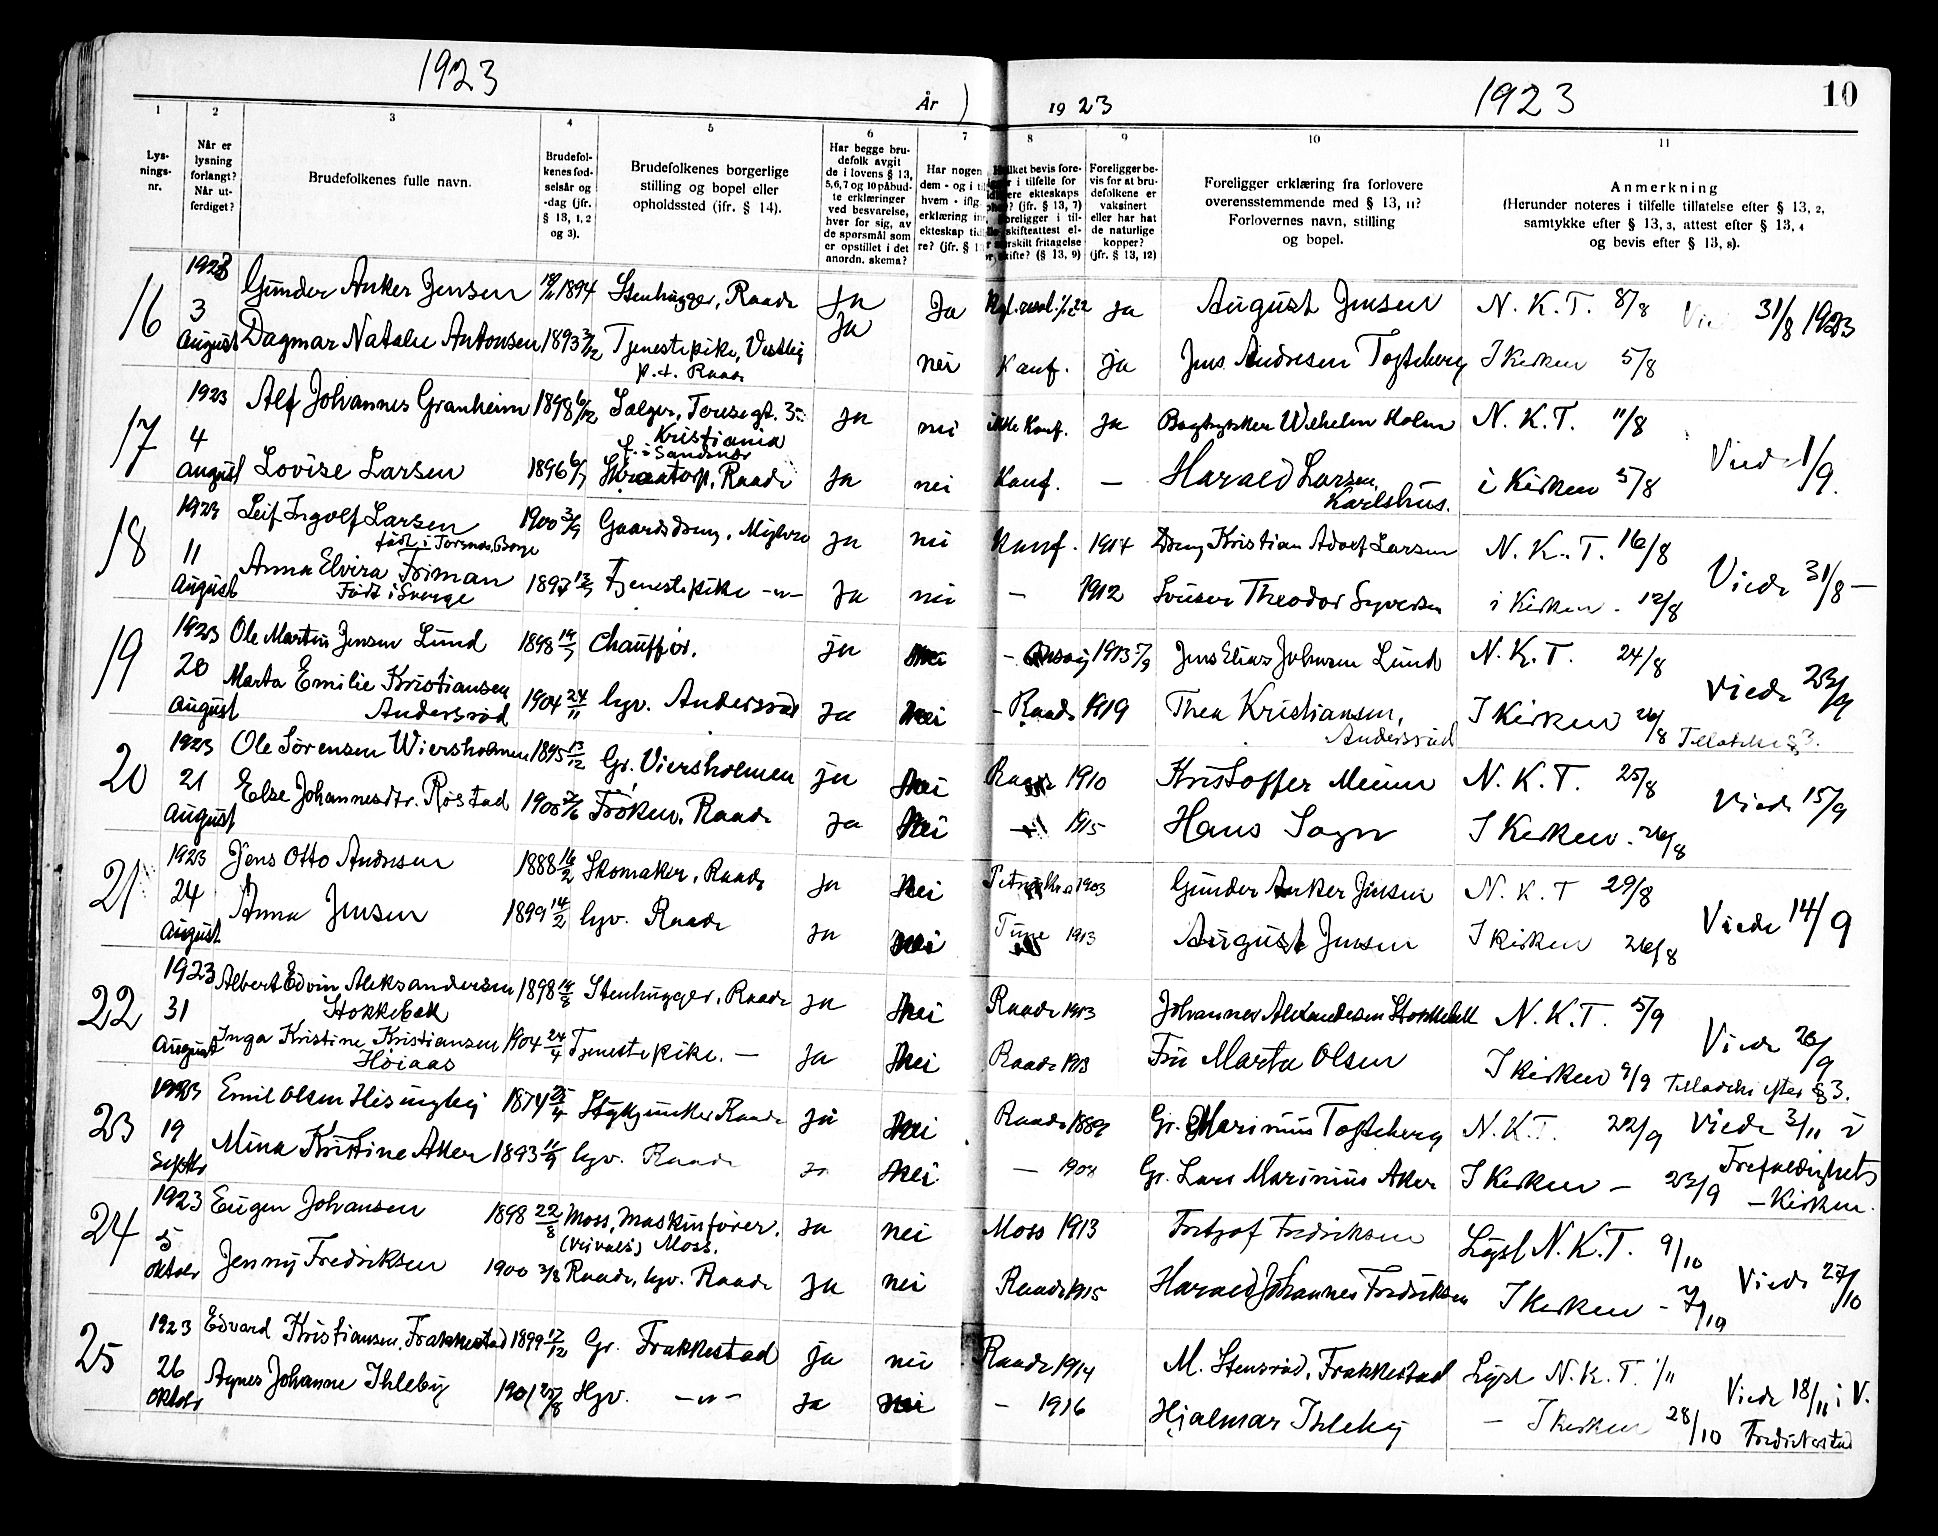 1923
År
1923
1923
10
1
Lys-
nings-
nr.
2
Når er
lysning
forlangt?
Når ut-
ferdiget?
3
Brudefolkenes fulle navn.
4
Brudefol-
kenes fød-
selsår og
-dag (jfr.
§ 13, 1, 2
og 3).
5
Brudefolkenes borgerlige
stilling og bopel eller
opholdssted (ifr. § 14).
6
Har begge bru-
defolk avgit
de i lovens § 13,
5,6,7 og 10 påbud-
te erklæringer
ved besvarelse,
hver for sig, av
de spørsmål som
er opstillet i det
anordn. skema?
7
Har nogen
dem - og i
hvem - iflg.
erklæring
ekteskap
re? (jfr. §
8
bevis fore-
i tilfelle for
ekteskaps
(jfr. § 13, 7)
i til-
skifteattest el-
fritagelse
skifte? (§ 13, 9)
9
Foreligger be-
vis for at bru-
defolkene er
vaksinert
eller har hat
de naturlige
kopper?
(jfr. § 13, 12)
10
Foreligger erklæring fra forlovere
overensstemmende med § 13, 11?
Forlovernes navn, stilling
og bopel.
11
Anmerkning
(Herunder noteres i tilfelle tillatelse efter § 13, 2,
samtykke efter § 13, 3, attest efter § 13, 4
og bevis efter § 13, 8).
16
1923
3
August
Gunder Anker Jensen 1894 Stenhugger, Raade Ja Ja ja August Jensen N. K. T. 8/8
31/8 1923
Dagmar Natalie Antonsen 1893 Tjenestepike, Vestby
p.t. Raade
Ja nei Konf. ja Jens Andresen Togteberg I Kirken 5/8
17
1923
4
august
Alf Johannes Granheim 1898 6/12 Sælger, 35
Kristiania
ja nei ikke Konf. ja Wilhelm Holm N. K. T. 11/8
f. i Sandnær
Lovise Larsen 1896 Raade ja nei Konf. — Harald Larsen,
Karlshus.
i Kirken 5/8
Viede 1/9.
18
1923
11
August
Leif Ingolf Larsen
født i Torsnæs, Borge
1900 3/9 Gaardsdreng, ja nei Konf. 1914 Dreng Kristian Adolf Larsen N. K. T. 16/8
Anna Elvira Friman
Født i Sverge
1897 Tjenestepike -"- ja nei — 1912 Theodor Syversen i Kirken. 12/8
Viede 31/8 —
19
1923
20
August
Ole Martin Jensen Lund 1898 Chauffør. ja nei 1913 Jens Elias Johnsen Lund N. K. T. 24/8
Marta Emilie Kristiansen
Andersrød
1904 24/11 hjv. Andersrød ja nei - Raade 1919 Thea Kristiansen,
Andersrud
I Kirken 26/8
Viede 23/9
Tilladelse § 3.
20
1923
21
August
Ole Sørensen Wiersholmen 1895 13/12 Gr. Viersholmen ja nei Raade 1910 Kristoffer N. K. T. 25/8
Else Johannesdtr. Røstad Frøken. Raade ja nei 1915 Hans Sogn I Kirken. 26/8
Viede 15/9
21
1923
24
August
Jens Otto Andresen 1888 16/2 Skomaker, Raade ja nei 1903 Gunder Anker Jensen N. K. T 29/8
Anna Jensen 1899 14/2 hjv. Raade ja nei Tune 1913 August Jensen I kirken 26/8
Viede 14/9
22
1923
31
August
Albert Edvin Aleksandersen
Stokkebæk
1898 14/8 Stenhugger, Raade ja nei Raade 1913 Johannes Alexandersen N. K. T. 5/9
Inga Kristine Kristiansen
Høiaas
1904 24/4 Tjenestepike. — ja nei Raade Fru Marta Olsen I kirken 9/9
Viede 26/9
Tilladelse efter § 3.
23
1923
19
Septbr
Emil Olsen 1874 Raade ja nei Raade 1889 Gr. Marinius Togteberg N. K. T. 22/9
Mina Kristine Aker 1893 hjv. Raade ja nei — Gr. Lars Marinius Aker I Kirken — 23/9
Viede 3/11 i
Trefoldighets
-Kirken.
24
1923
5
oktobr
Eugen Johansen 1898 22/8 Moss, maskinfører.
Moss.
ja nei Moss 1913 Fritjof Fredriksen Lyst N. K. T. 9/10
Jenny Fredriksen 1900 Raade, hjv. Raade ja nei Raade 1915 Harald Johannes Fredriksen I Kirken - 7/10
Viede 27/10
25
1923
26
oktobr
Edvard Kristiansen, Frakkestad 1899 17/12 Gr. Frakkestad ja nei Raade 1914 M. Stensrød, Frakkestad Lyst N. K. T. 1/11
Agnes Johanne Ihleby 1901 Hjv. -"- ja nei — 1916 Hjalmar Ihleby — I kirken 28/10
Viede 18/11 i V.
Fredrikstad